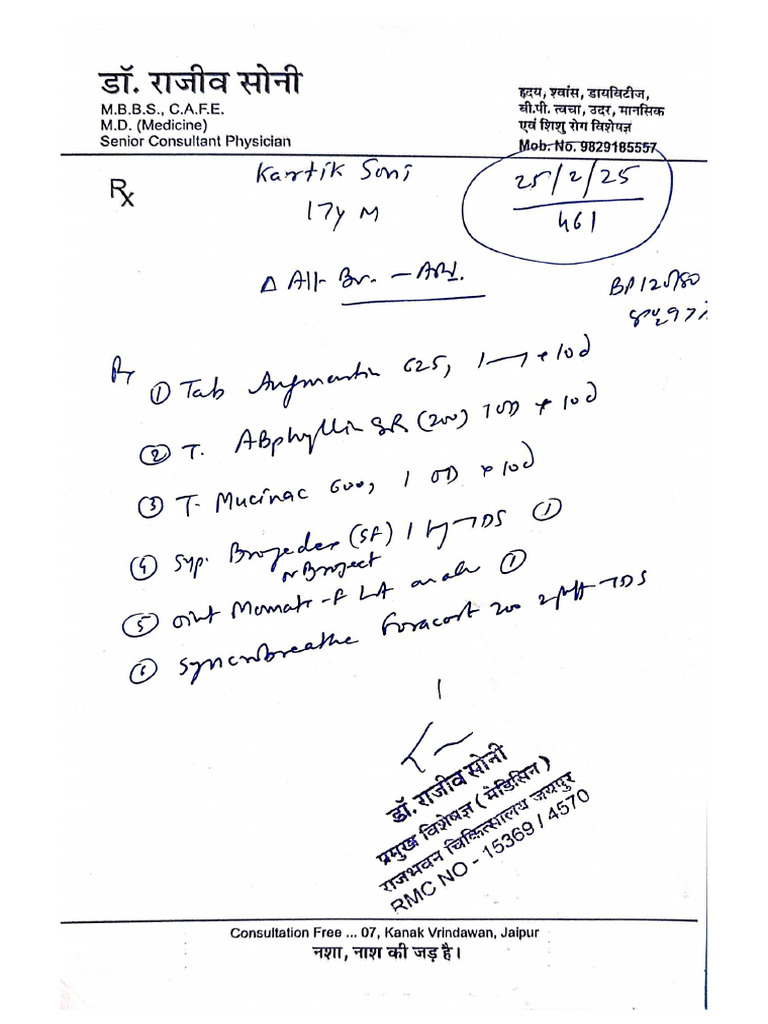 डॉ. राजीव सोनी
M.B.B.S., C.A.F.E.
M.D. (Medicine)
Senior Consultant Physician
हृदय, श्वांस, डायविटीज,
बी.पी. त्वचा, उदर, मानसिक
एवं शिशु रोग विशेषज्ञ
Mob. No. 9829185557
Rx
Kartik Soni
17y M
25/2/25
461
Δ All. Br. –
BP 120/80
SPO2 97%
① Tab Augmentin 625, 1 x 10d
② T. ABphyllin SR (200) 1 OD x 10d
③ T. Mucinac 600, 1 OD x 10d
④ Syp. Brozedex (SF) 1 TDS ①
or Broject
⑤ oint Momate-F LA ①
⑥ Syncrobreathe Foracort 200 2 puff
1
डॉ. राजीव सोनी
प्रमुख विशेषज्ञ (मेडिसिन)
राजभवन चिकित्सालय जयपुर
RMC NO - 15369 / 4570
Consultation Free ... 07, Kanak Vrindawan, Jaipur
नशा, नाश की जड़ है।